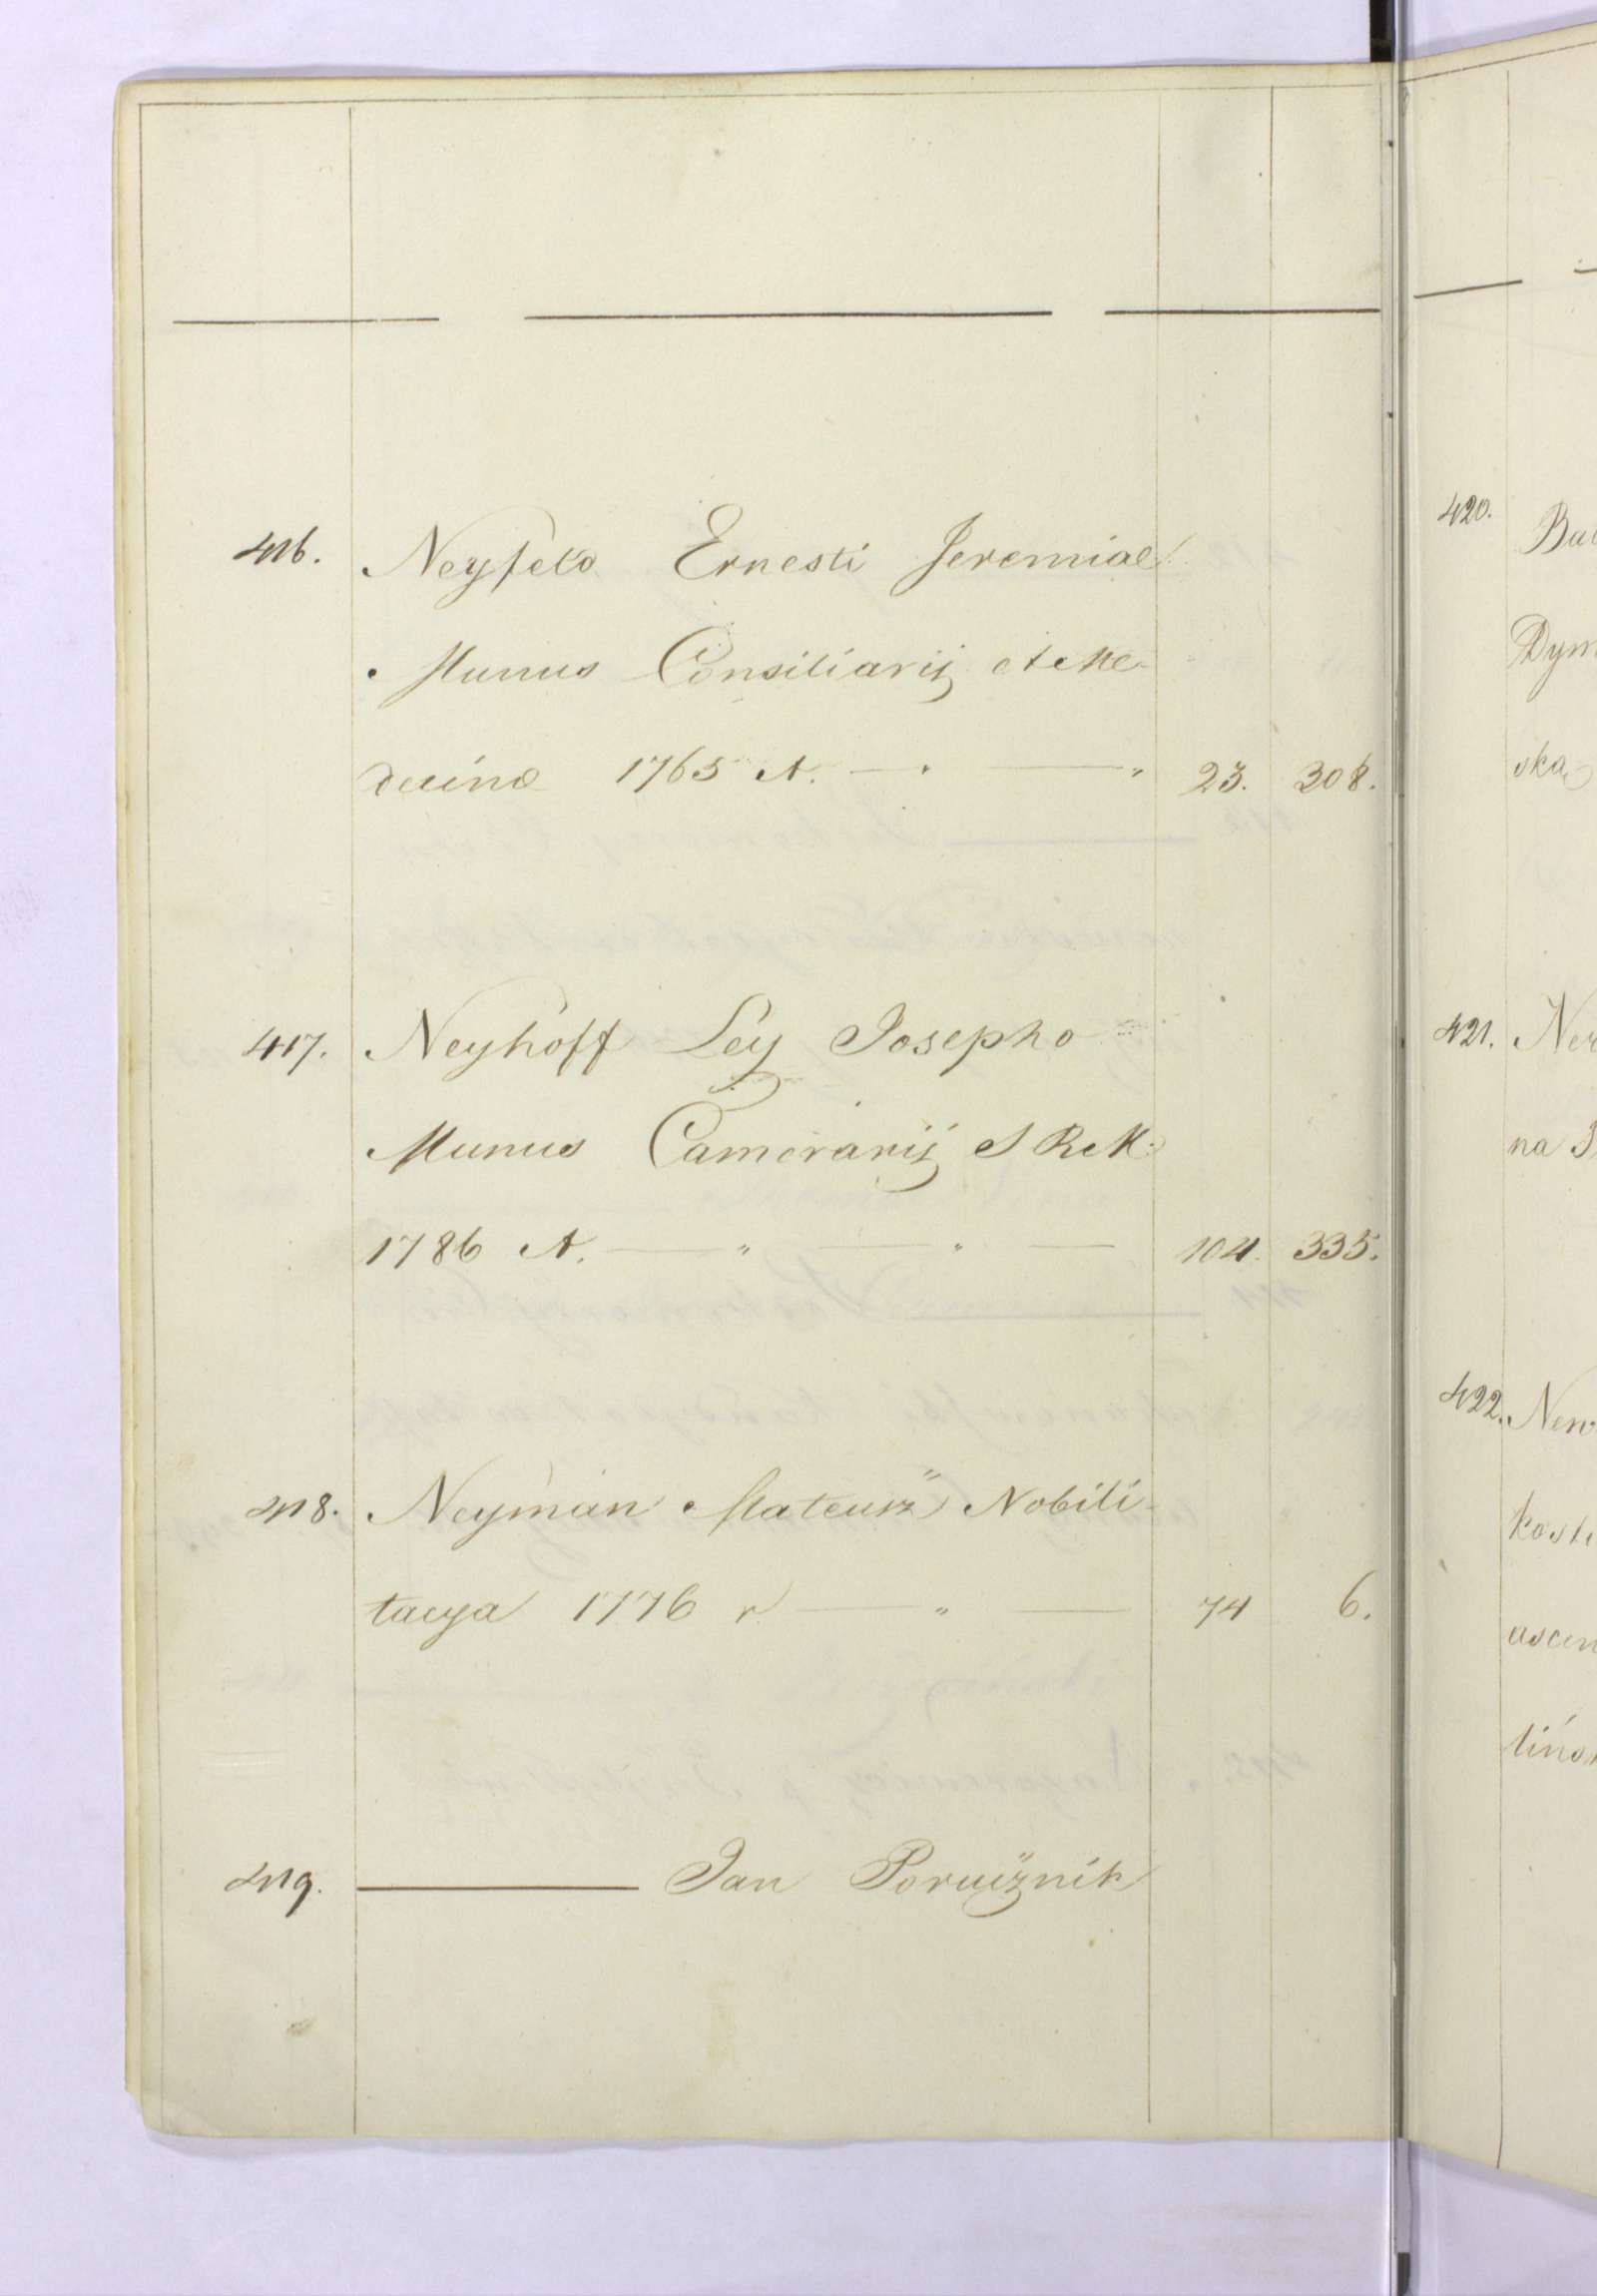 416. Neyfeld Ernesti Jeremiae
Munus Consiliarij et Me-
1765 A. — " — " 23. 308.
417. Neyhoff Ley Josepho
Munus Camerarij S R M.
1786 A. — " — " — 104. 335.
418. Neyman Mateusz Nobili-
tacya 1776 r — " — 74 6.
419. — Jan Porucznik
420.
421.
na
422.